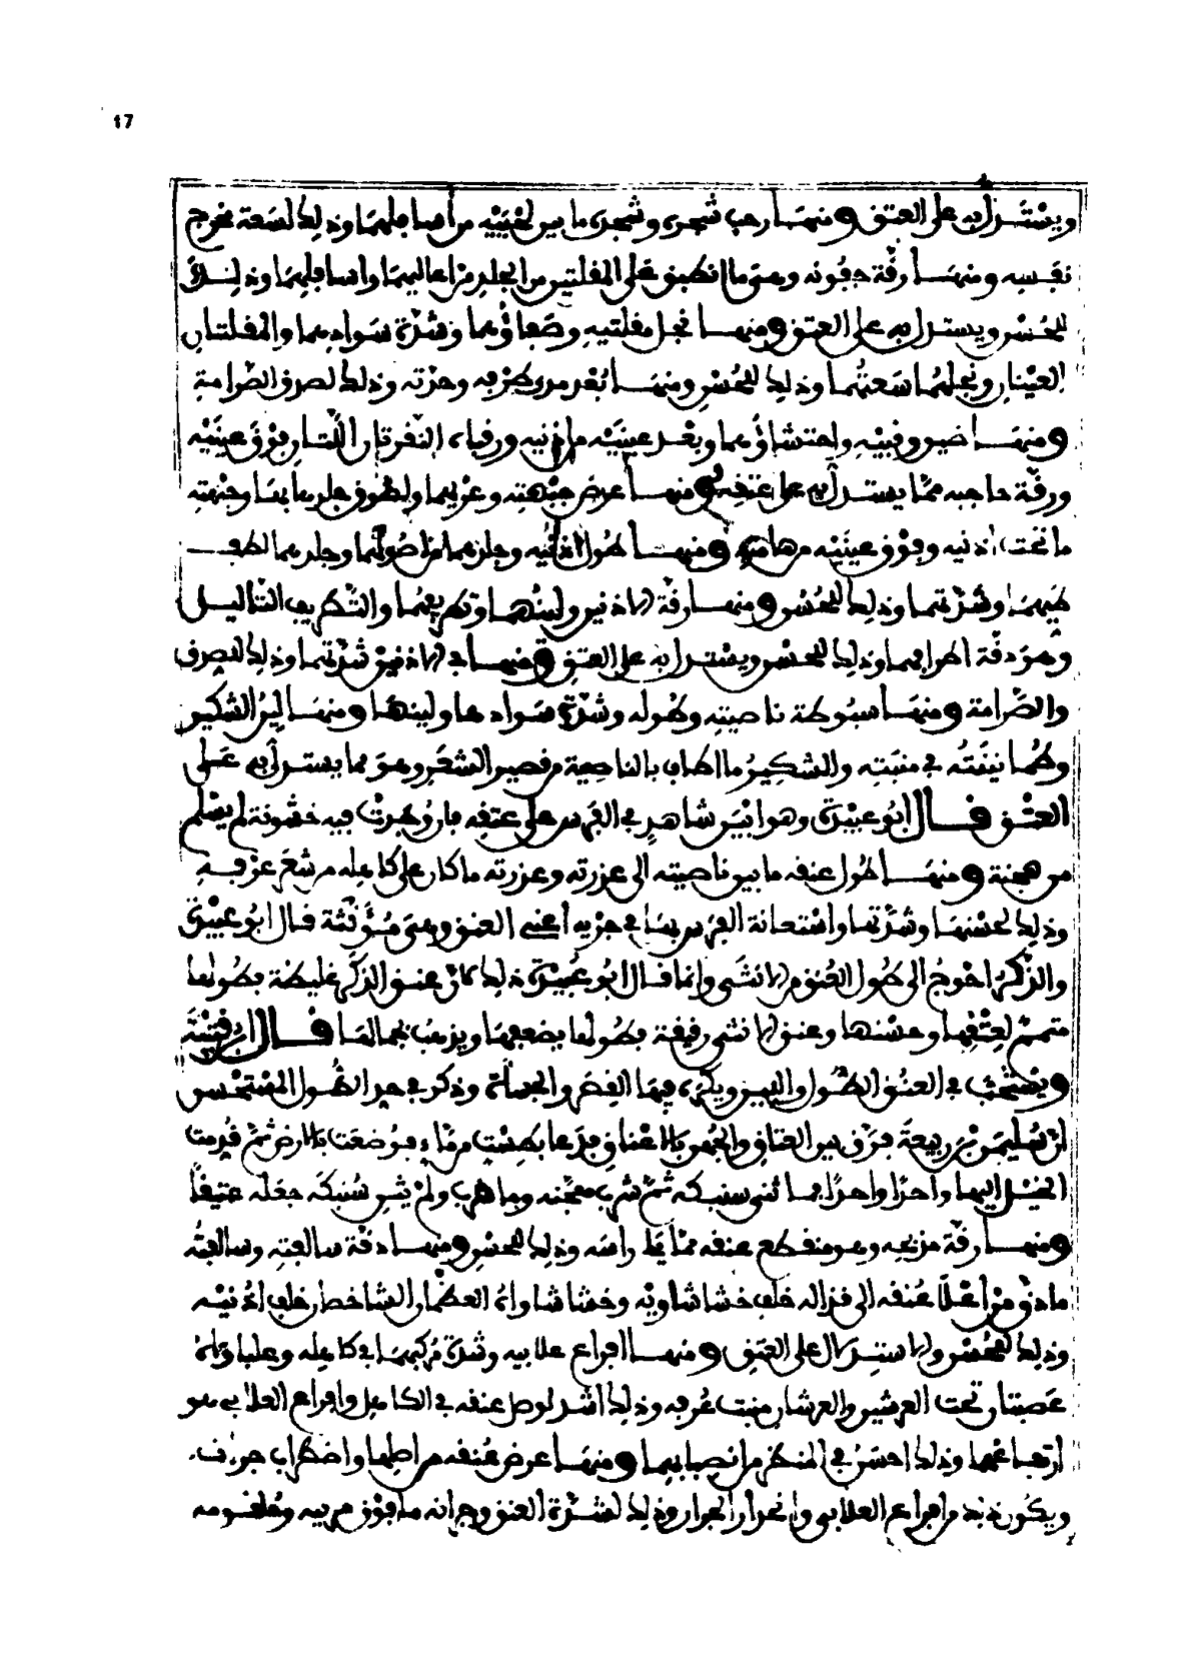 17
ويستدل به على العتق ومنها رحب شجره وشجره ما بين لحييه من أسافلهما وذلك لسعة مخرج
نفسه ومنها رقة جفونه وهي ما انطبق على المقلتين من الجلد من أعاليهما وأسافلهما وذلك
للحسن ويستدل به على العتق ومنها نجل مقلتيه وصفاؤهما وشدة سوادهما والمقلتان
العينان ونجلهما سعتهما وذلك للحسن ومنها بعد مدى طرفه وحدته وذلك لصدق الصرامة
ومنها ضيق وقبيه واحتشاؤهما وبعد عينيه من أذنيه ورقباء النقرتان اللتان فوق عينيه
ورقة حاجبه مما يستدل به على عتقه ومنها عرض جبهته وعريهما ولصوق جلدها بها وجبهته
ما تحت أذنيه وفوق عينيه من هامته ومنها طول أذنيه وجدلهما من أصولهما وجلدهما
وشدتهما وذلك للحسن ومنها رقة الأذنين ولينهما وتطريفهما والتطريف التأليل
وهو دقة أطرافهما وذلك للحسن ويستدل به على العتق ومنها في الأذنين شدتهما وذلك للصدق
والصرامة ومنها سبوطة ناصيته وطوله وشدة سوادها ولينها ومنها لين الشكير
وطمأنينته في منبته والشكير ما أطاف بالناصية من قصير الشعر وهو مما يستدل به على
العتق قال أبو عبيدة وهو أبين شاهد في الفرس على عتقه فإن وجدت فيه خشونة لم يسلم
من هجنة ومنها طول عنقه ما بين ناصيته إلى عذرته وعذرته ما كان على كاهله من شعر عرفه
وذلك لحسنها وشدتها واستعانة الفرس بها في جريه أعني العنق وهي مؤنثة قال أبو عبيدة
والذكر أحوج إلى طول العنق من الأنثى وإنما قال أبو عبيدة ذلك لأن عنق الذكر غليظة بطولها
متمم لعتقها وحسنها وعنق الأنثى رقيقة بطولها يضعفها ويذهب بجمالها قال ابن قتيبة
ويستحب في العنق الطول واللين ويكره فيها القصر والجسأة وذكر في حد الطول المستحسن
أن سليمن بن ربيعة فرق بين العتاق والهجن بالأعناق فدعا بطست من ماء فوضعت بالأرض ثم قدمت
الخيل إليها واحدا واحدا فما ثنى سنبكه ثم شرب هجنه وما شرب ولم يثن سنبكه جعله عتيقا
ومنها رقة مذبحه وهو منقطع عنقه مما يلي رأسه وذلك للحسن ومنها دقة سالفته وسالفته
ما دق من أعلا عنقه إلى قذاله خلف خششاويه وخششاواه العظمان الشاخصان خلف أذنيه
وذلك للحسن والاستدلال على العتق ومنها إفراع علابيه وشدة مركبها في كاهله وعلباواه
عصبتان تحت العرشين والعرشان منبت عرفه وذلك أشد لوصل عنقه في الكاهل وإفراع العلابي هو
ارتفاعها وذلك أحسن في المنظر من انصبابها ومنها عرض عنقه من أصلها واضطراب جرانه
ويكون ذلك من إفراع العلابي وانحدار الجران وذلك لشدة العنق وجرانه ما فوق مريه وحلقومه